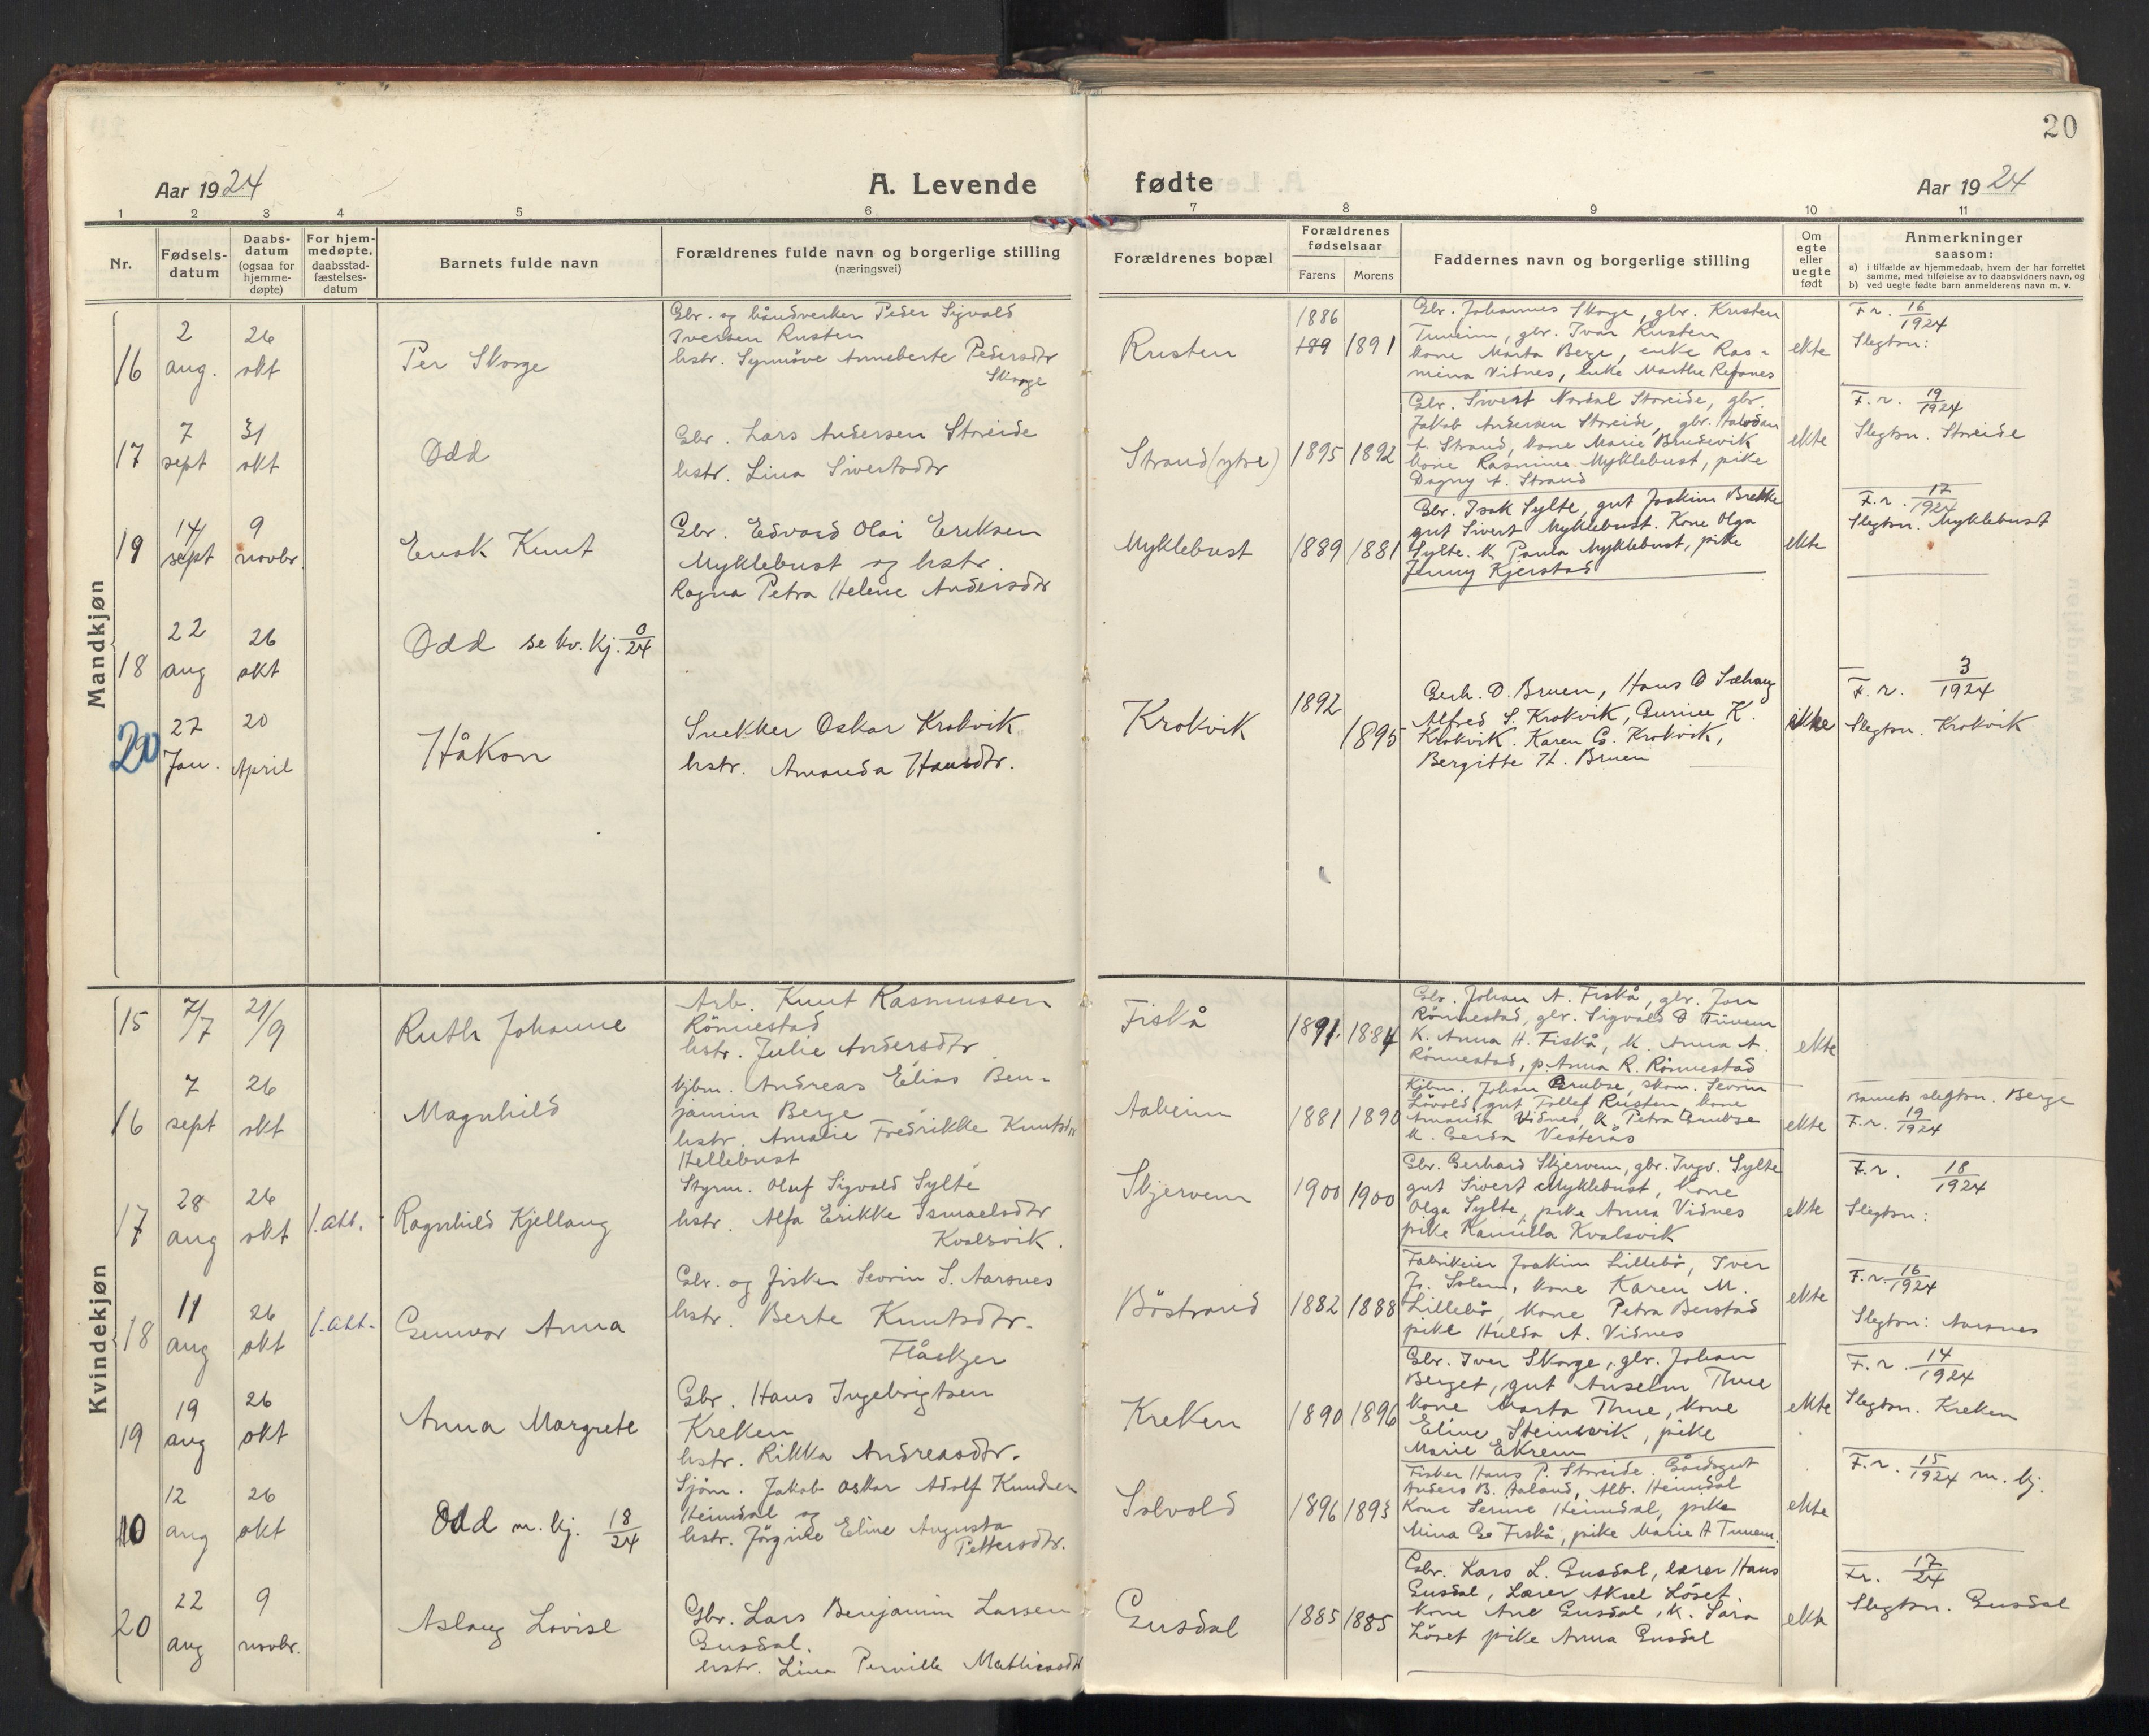 20
Aar 1924
A. Levende fødte
Aar 1924
1 2 3 4 5 6 7 8 9 10 11
Nr.
Fødsels-
datum
Daabs-
datum
(ogsaa for
hjemme-
døpte)
For hjem-
medøpte,
daabsstad-
fæstelses-
datum
Barnets fulde navn
Forældrenes fulde navn og borgerlige stilling
(næringsvei)
Forældrenes bopæl
Forældrenes
fødselsaar
Farens Morens
Faddernes navn og borgerlige stilling
Om
egte
eller
uegte
født
Anmerkninger
saasom:
a) i tilfælde av hjemmedaab, hvem der har forrettet
samme, med tilføielse av to daabsvidners navn, og
b) ved uegte fødte barn anmelderens navn m. v.
Mandkjøn
16
2
aug.
26
okt
Per Skorge
Gbr. og håndverker Peder Sigvald
Iversen Rusten
hstr. Synnöve Anneberte Pedersdtr
Skorge
Rusten
1886
189
1891
Gbr. Johannes Skorge, gbr. Kristen
Tunheim, gbr. Ivar Rusten
kone Marta Berge, enke Ras-
mina Vidnes, enke Marthe Refsnes
ekte
F. r. 16/1924
Slegtsn:
17
7
sept
31
okt
Odd
Gbr. Lars Andersen Storeide
hstr. Lina Sivertsdtr
Strand (ytre)
1895 1892
Gbr. Sivert Nordal Storeide, gbr.
Jakob Andersen Storeide, gbr. Halvdan
A. Strand, kone Marie Brudevik
kone Rasmine Myklebust, pike
Dagny A. Strand
ekte
F. r. 19/1924
Slegtsn. Storeide
19
14
sept
9
novbr.
Enok Knut
Gbr. Edvard Olai Eriksen
Myklebust og hstr.
Ragna Petra Helene Andersdtr
Myklebust
1889 1881
Gbr. Isak Sylte, gut Joakim Brekke
gut Sivert Myklebust. Kone Olga
Sylte. K Paula Myklebust, pike
Jenny Kjerstad
ekte
F. r. 17/1924
Slegtsn. Myklebust
18
22
aug
26
okt
Odd se kv. kj. 0/24
20
27
Jan.
20
April
Håkon
Snekker Oskar Krokvik
hstr. Amanda Hansdtr.
Krokvik
1892
1895
Gerh. O. Bruen, Hans O Sæhaug
Alfred S. Krokvik, Gurine K.
Krokvik. Karen G. Krokvik,
Bergitte H. Bruen
ikke
F. r. 3/1924
Slegtsn. Krokvik
Kvindekjøn
15
7/7
21/9
Ruth Johanne
Arb. Knut Rasmussen
Rönnestad
hstr. Julie Andersdtr
Fiskå
1891. 1884
Gbr. Johan A. Fiskå, gbr. Jon
Rönnestad, gbr. Sigvald O Tunem
K. Anna H. Fiskå, K. Anna A.
Rönnestad, p. Anna R. Rönnestad
ekte
16
7
sept
26
okt
Magnhild
kjbm. Andreas Elias Ben-
jamin Berge
hstr. Amalie Fredrikke Knutsdtr
Hellebust
Aaheim
1881 1890
Kjbm. Johan Grubse, skom. Severin
Lövold, gut Tollef Rusten kone
Amanda Vidnes, K. Petra Grubse
K. Gerda Vesterås
ekte
Barnets slegtsn. Berge
F. r. 19/1924
17
28
aug
26
okt
l. att.
Ragnhild Kjellaug
Styrm. Oluf Sigvald Sylte
hstr. Alfa Erikke Ismaelsdtr
Kvalsvik.
Skjervem
1900 1900
Gbr. Gerhard Skjervem, gbr. Ingv. Sylte
gut Sivert Myklebust, kone
Olga Sylte, pike Anna Vidnes
pike Kamilla Kvalsvik
ekte
F. r. 18/1924
Slegtsn:
18
11
aug
26
okt
l. att.
Gunvor Anna
Gbr. og fisker Severin S. Aarsnes
hstr. Berte Knutsdtr.
Flåskjer
Böstrand
1882 1888
Fabrikeier Joakim Lillebö, Iver
J. Solem, kone Karen M.
Lillebö, kone Petra Berstad
pike Hulda A. Vidnes
ekte
F. r. 16/1924
Slegtsn: Aarsnes
19
19
aug
26
okt
Anna Margrete
Gbr. Hans Ingebrigtsen
Kreken
hstr. Rikka Andreasdtr.
Kreken
1890 1896
Gbr. Iver Skorge, gbr. Johan
Berget, gut Anselm Thue
kone Marta Thue, kone
Eline Steinsvik, pike
Marie Ekrem
ekte
F. r. 14/1924
Slegtsn. Kreken
10
12
aug
26
okt
Odd m. kj. 18/24
Sjöm. Jakob Oskar Adolf Knudsen
Heimdal og
hstr. Jörgine Eline Augusta
Pettersdtr.
Solvold
1896 1893
Fisker Hans P. Storeide. Gårdsgut
Anders B. Aaland, Alb. Heimdal
Kone Serine Heimdal, pike
Mina Ge Fiskå, pike Marie A Tunem
ekte
F. r. 15/1924 m. kj.
20
22
aug
9
novbr.
Aslaug Lovise
Gbr. Lars Benjamin Larsen
Gusdal.
hstr. Lina Pernille Mathiasdtr
Gusdal
1885 1885
Gbr. Lars L. Gusdal, lærer Hans
Gusdal, Lærer Aksel Löset.
kone Ane Gusdal, K. Sara
Löset pike Anna Gusdal
ekte
Fr. 17/24
Slegtsn. Gusdal